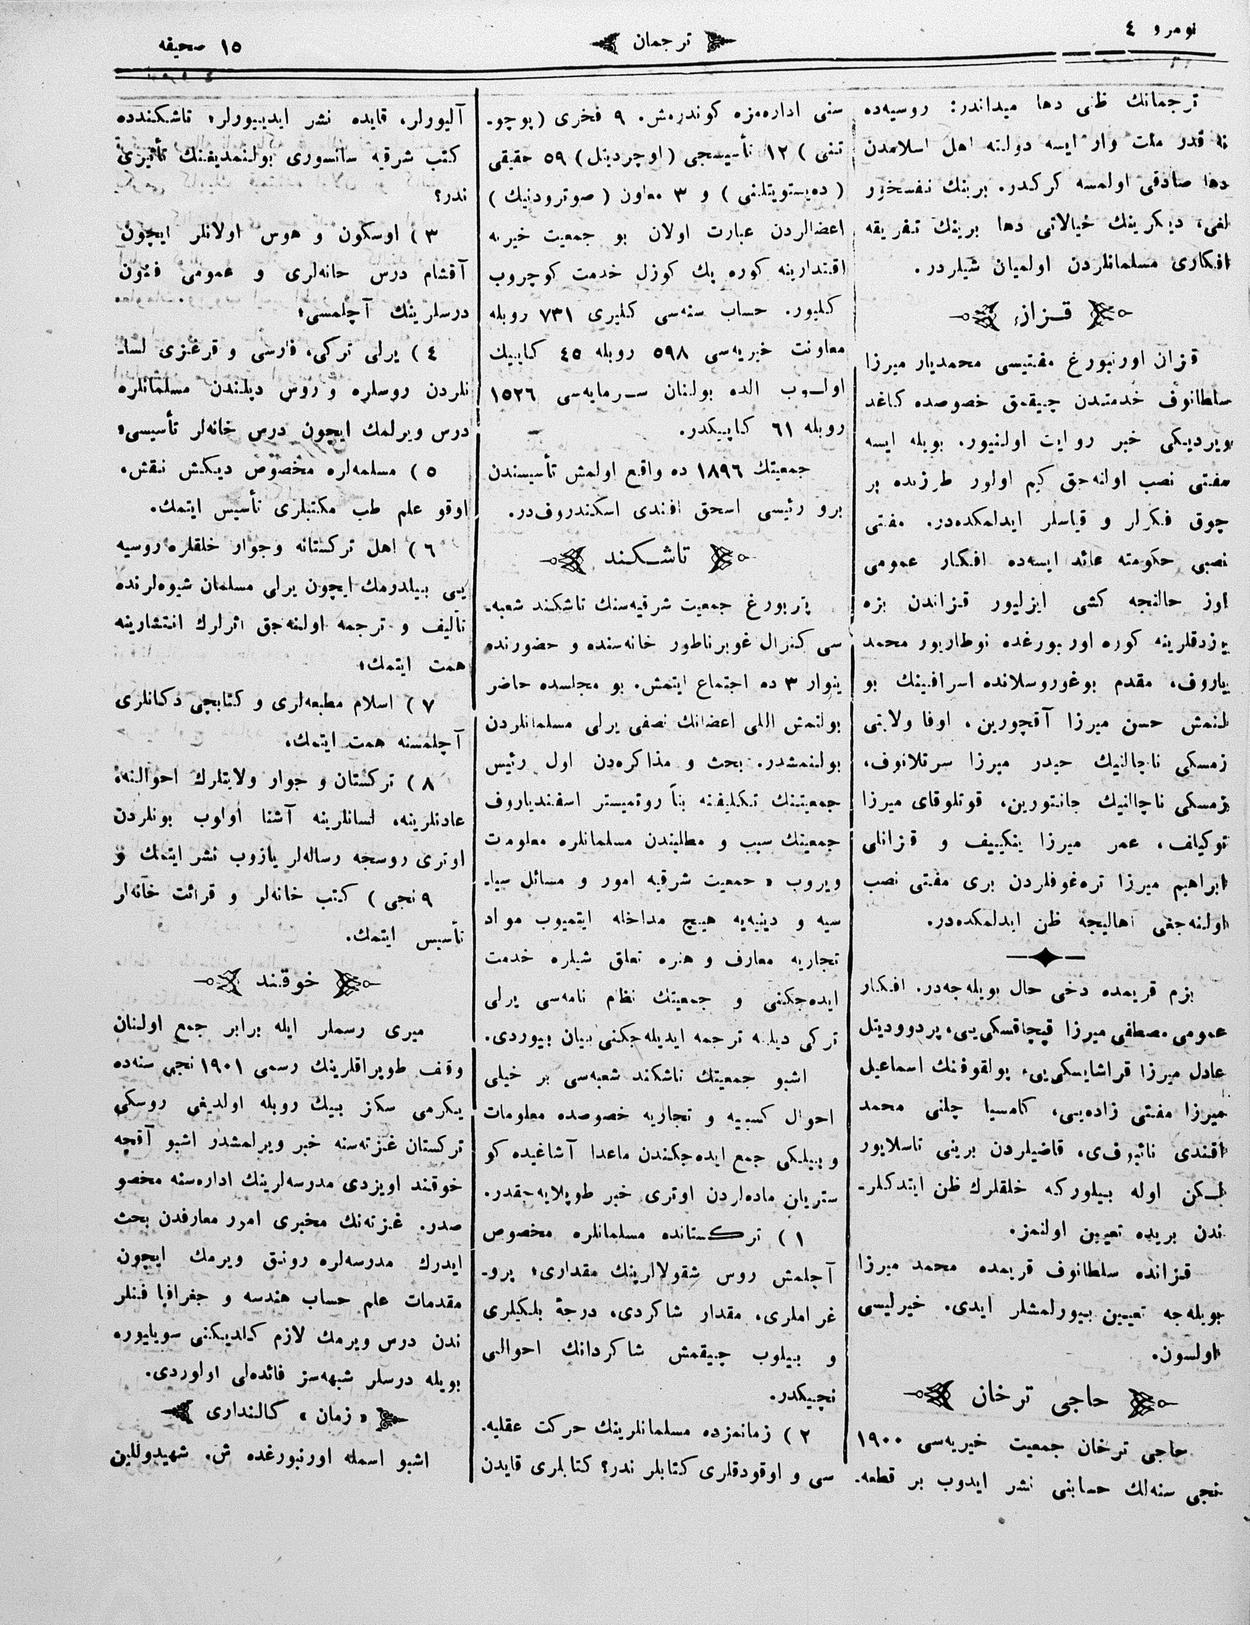 نومرو ٤
ترجمان
١٥ صحیفه
ترجمانك ظنی دها میداندر: روسیه‌ده
نه قدر ملت وار ایسه دولته اهل اسلامدن
دها صادقی اولمسه كركدر. برینك نفسخور
لغی، دیكرینك خیالاتی دها برینك تفریقه
افكاری مسلمانلردن اولمیان شیلردر.
قزان
قزان اورنبورغ مفتیسی محمدیار میرزا
سلطانوف خدمتدن چیقمق خصوصده كاغد
ویردیكی خبر روایت اولنیور. بویله ایسه
مفتی نصب اوله‌جق كیم اولور طرزنده پر
چوق فكرلر و قیاسلر ایدلمكده‌در. مفتی
نصبی حكومته عائد ایسه‌ده افكار عمومی
اوز حالنجه كشی ایزلیور قزاندن بزه
یزدقلرینه كوره اورنبورغده نوطاریور محمد
یاروف، مقدم بوغوروسلانده اسرافینك بو
لنمش حسن میرزا آقچورین، اوفا ولایتی
زمسكی ناچالنیك حیدر میرزا سرتلانوف،
زمسكی ناچالنیك جانتورین، قوتلوقای میرزا
توكیلف، عمر میرزا ینكییف و قزانلی
ابراهیم میرزا تره‌غوفلردن بری مفتی نصب
اولنه‌جغی اهالیجه ظن ایدلمكده‌در.
بزم قریمده دخی حال بویله‌جه‌در. افكار
عمومی مصطفی میرزا قپچاقسكی‌یی، پردوودیتل
عادل میرزا قراشایسكی‌یی، پولقوفنك اسماعیل
میرزا مفتی زاده‌یی، كامسیا چلنی محمد
افندی نائب‌وفی، قاضیلردن برینی تاسلایور
لـكن اوله بیلوركه خلقلرك ظن ایتدكلر-
ندن بریده تعیین اولنمز.
قزانده سلطانوف قریمده محمد میرزا
بویله‌جه تعیین بیورلمشلر ایدی. خیرلیسی
اولسون.
حاجی ترخان
حاجی ترخان جمعیت خیریه‌سی ١٩٠٠
نجی سنه‌لك حسابنی نشر ایدوب بر قطعه-
سنی اداره‌مزه كوندرمش. ٩ فخری (پوچو-
تنی) ١٢ تأسیسجی (اوچردیتل) ٥٩ حقیقی
(ده‌یستویتلنی) و ٣ معاون (صوترودنیك)
اعضالردن عبارت اولان بو جمعیت خیریه
اقتدارینه كوره پك كوزل خدمت كوچروب
كلیور. حساب سنه‌سی كلیری ٧٣١ روبله
معاونت خیریه‌سی ٥٩٨ روبله ٤٥ كاپیك
اولـوب الده بولنان سـرمایه‌سی ١٥٢٦
روبله ٦١ كاپیكدر.
جمعیتك ١٨٩٦ ده واقع اولمش تأسیسندن
برو رئیسی اسحق افندی اسكندروف‌در.
تاشـكند
پتربورغ جمعیت شرقیه‌سنك تاشكند شعبه-
سی كنرال غوبرناطور خانه‌سنده و حضورنده
ینوار ٣ ده اجتماع ایتمش. بو مجلسده حاضر
بولنمش اللی اعضانك نصفی یرلی مسلمانلردن
بولنمشدر. بحث و مذاكره‌دن اول رئیس
جمعیتنك تكلیفنه بناً روتمیستر اسفندیاروف
جمعیتك سبب و مطلبندن مسلمانلره معلومات
ویروب «جمعیت شرقیه امور و مسائل سیا-
سیه و دینیه‌یه هیچ مداخله ایتمیوب مواد
تجاریه معارف و هنره تعلق شیلره خدمت
ایده‌جكنی و جمعیتك نظام نامه‌سی یرلی
تركی دیلنه ترجمه ایدیله‌جكنی بیان بیوردی.
اشبو جمعیتك تاشكند شعبه‌سی بر خیلی
احوال كسبیه و تجاریه خصوصده معلومات
و بیلیكی جمع ایده‌جكندن ماعدا آشاغیده كو
ستریلن ماده‌لردن اوتری خبر طوپلایه‌جقدر.
١) تركستانده مسلمانلره مخصوص
آچلمش روس شقولالرینك مقداری؛ پرو-
غراملری، مقدار شاكردی، درجۀ بلكیلری
و بیلوب چیقمش شاكردانك احوالی
نچیكدر.
٢) زمانمزده مسلمانلرینك حركت عقلیه-
سی و اوقودقلری كتابلر ندر؟ كتابلری قایدن
آلیورلر، قایده نشر ایدییورلر؛ تاشكندده
كتب شرقیه سانسوری بولنمدیغنك تأثیری
ندر؟
٣) اوسكون و هوس اولانلر ایچون
آقشام درس خانه‌لری و عمومی فنون
درسلرینك آچلمسی؛
٤) یرلی تركی، فارسی و قرغزی لسا-
نلردن روسلره و روس دیلندن مسلمانلره
درس ویرلمك ایچون درس خانه‌لر تأسیسی؛
٥) مسلمه‌لره مخصوص دیكش نقش،
اوقو علم طب مكتبلری تأسیس ایتمك.
٦) اهل تركستانه وجوار خلقلره روسیه
یی بیلدرمك ایچون یرلی مسلمان شیوه‌لرنده
تألیف و ترجمه اولنه‌جق اثرلرك انتشارینه
همت ایتمك؛
٧) اسلام مطبعه‌لری و كتابچی دكانلری
آچلمسنه همت ایتمك،
٨) تركستان و جوار ولایتلرك احوالنه،
عادتلرینه، لسانلرینه آشنا اولوب بونلردن
اوتری روسجه رساله‌لر یازوب نشر ایتمك و
٩ نجی) كتب خانه‌لر و قرائت خانه‌لر
تأسیس ایتمك.
خوقند
میری رسملر ایله برابر جمع اولنان
وقف طوپراقلرینك رسمی ١٩٠١ نجی سنه‌ده
یكرمی سكز بیك روبله اولدیغی روسكی
تركستان غزته‌سنه خبر ویرلمشدر اشبو آقچه
خوقند اویزدی مدرسه‌لرینك اداره‌سنه مخصو
صدر. غزته‌نك مخبری امور معارفدن بحث
ایدرك مدرسه‌لره رونق ویرمك ایچون
مقدمات علم حساب هندسه و جغرافیا فنلر
ندن درس ویرمك لازم كلدیكنی سویایوره
بویله درسلر شبهه‌سز فائده‌لی اولوردی.
«زمان» كالنداری
اشبو اسمله اورنبورغده ش. شهیدوللین